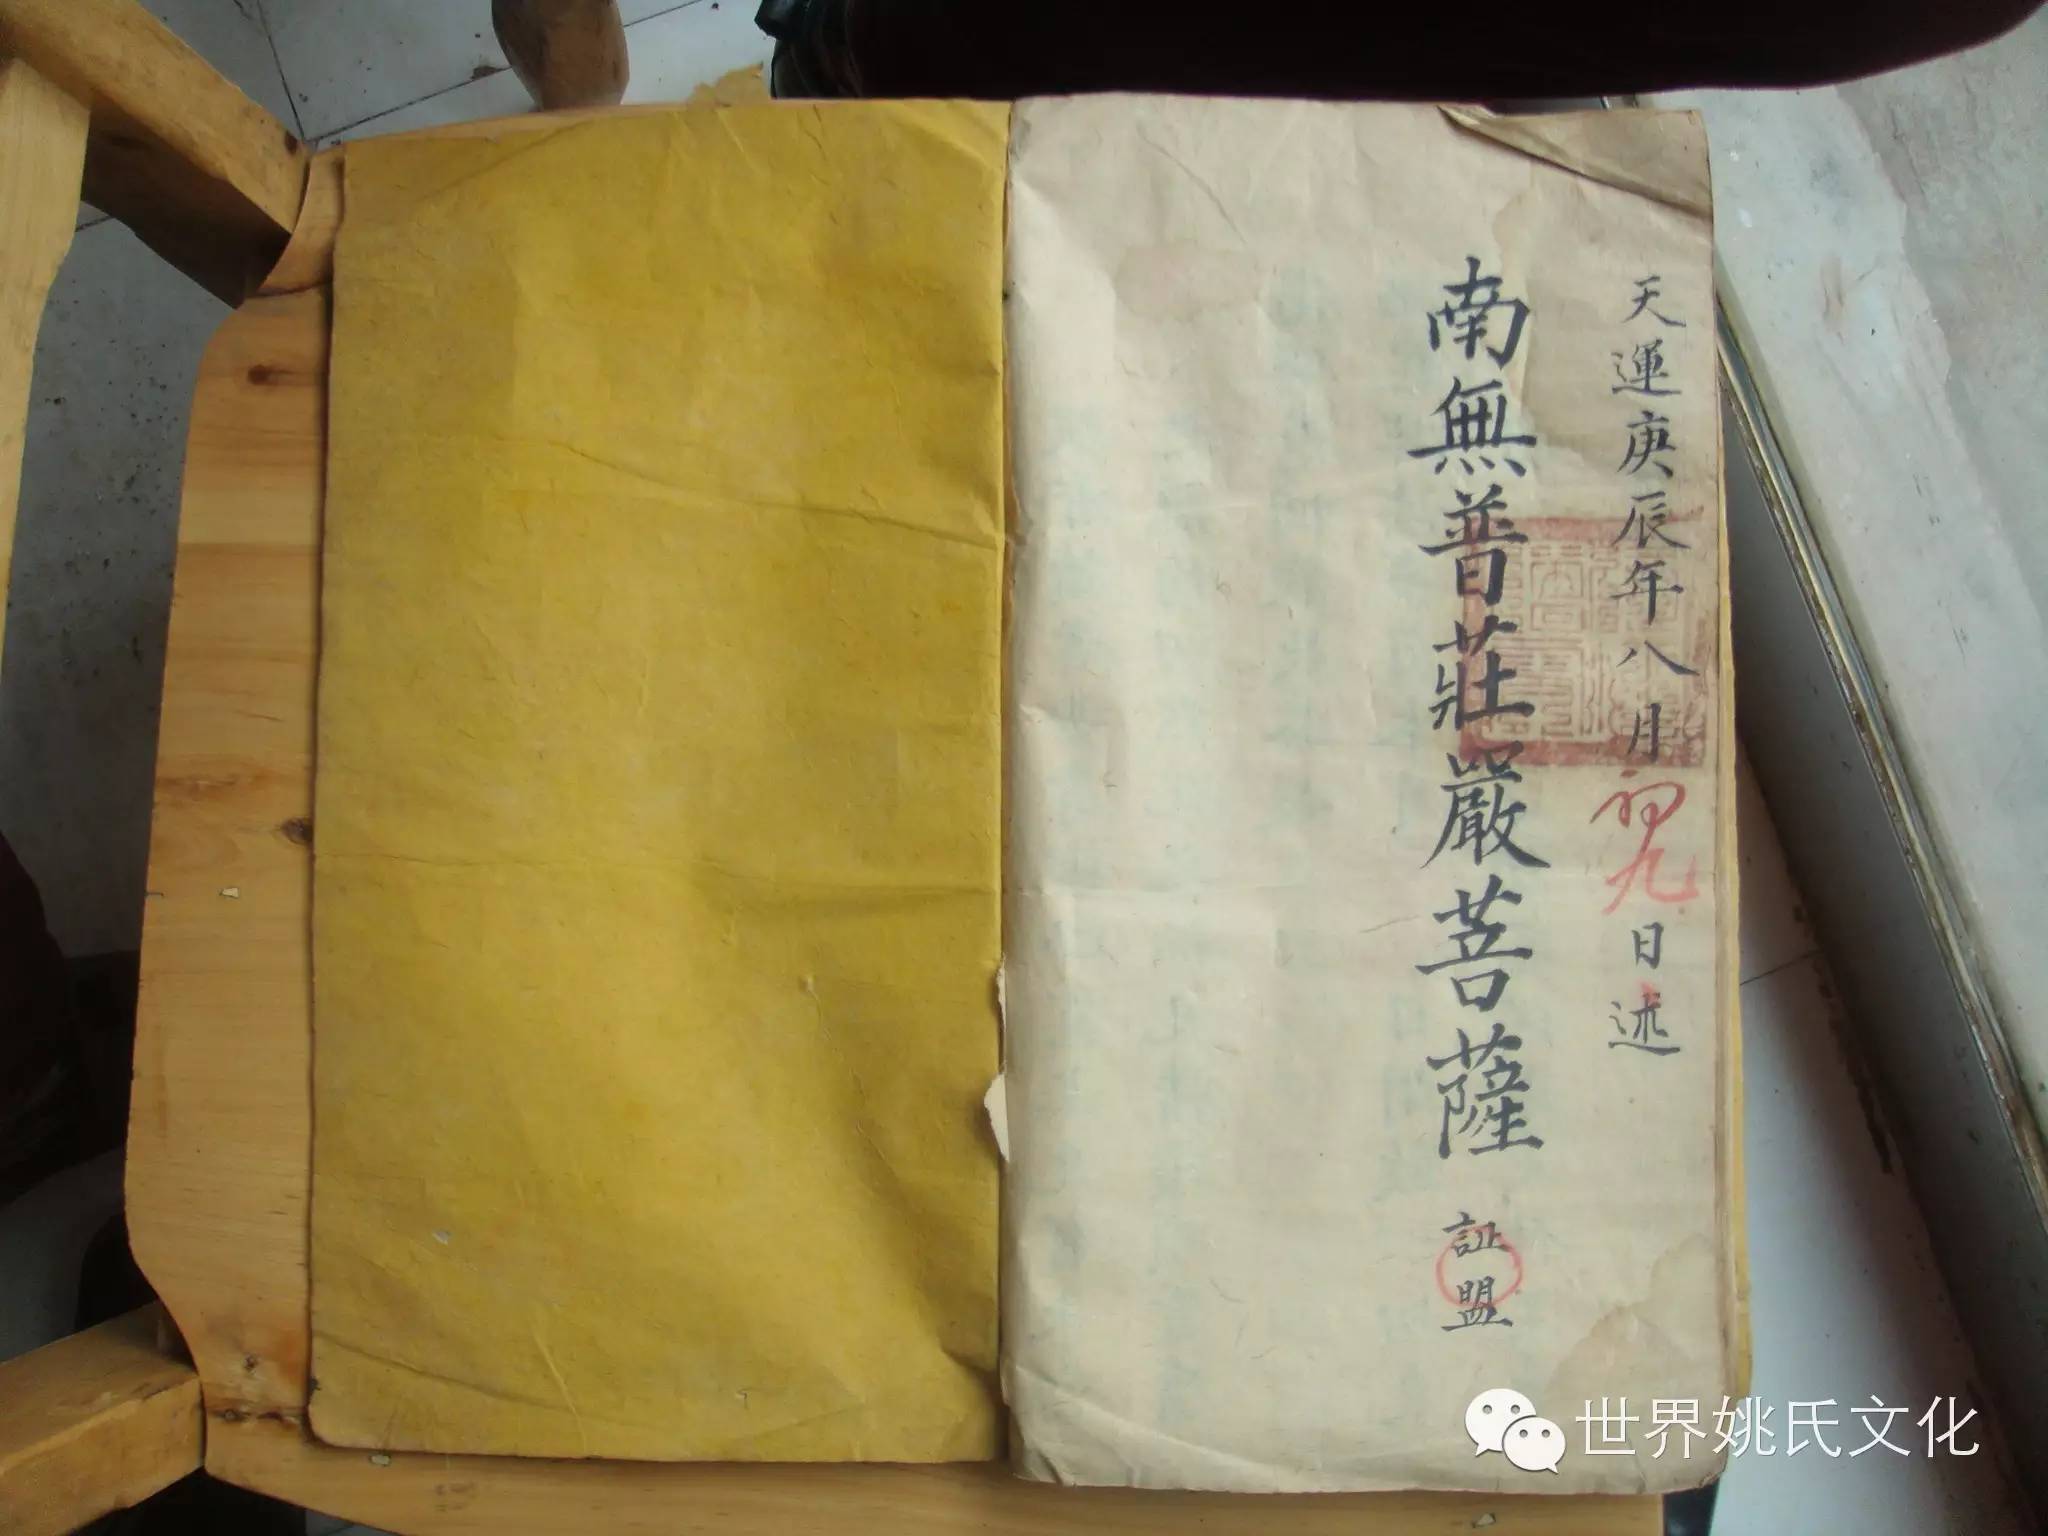 天運庚辰年八月初九日述
南無普莊嚴菩薩 証盟
世界姚氏文化